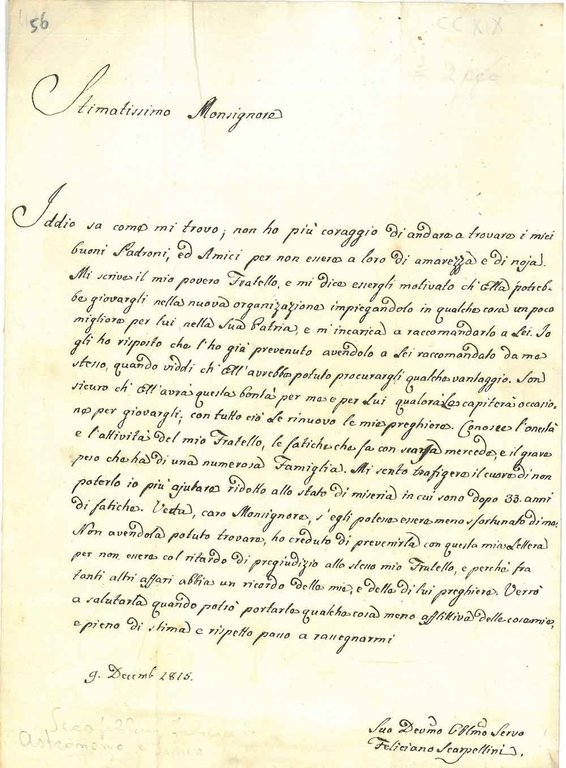 56
CCXIX
Stimatissimo Monsignore
Iddio sa come mi trovo; non ho più coraggio di andare a trovare i miei
buoni Padroni, ed Amici per non essere a loro di amarezza e di noja.
Mi scrive il mio povero Fratello, e mi dice essergli motivato ch'Ella potreb-
be giovargli nella nuova organizazione impiegandolo in qualche cosa un poco
migliore per lui nella Sua Patria, e m'incarica a raccomandarlo a Lei. Io
gli ho risposto che l'ho già prevenuto avendolo a Lei raccomandato da me
stesso, quando viddi ch'Ell'avrebbe potuto procurargli qualche vantaggio. Son
sicuro ch'Ell'avrà questa bontà per me e per Lui qualora Le capiterà occasio-
ne per giovargli; con tutto ciò Le rinuovo le mie preghiere. Conosce l'onestà
e l'attività del mio Fratello, le fatiche che fa con scarsa mercede, e il grave
peso che hà di una numerosa Famiglia. Mi sento trafigere il cuore di non
poterlo io più ajutare ridotto allo stato di miseria in cui sono dopo 33. anni
di fatiche. Veda, caro Monsignore, s'egli potesse essere meno sfortunato di me.
Non avendola potuto trovare, ho creduto di prevenirla con questa mia Lettera
per non essere col ritardo di pregiudizio allo stesso mio Fratello, e perchè fra
tanti altri affari abbia un ricordo delle mie, e delle di lui preghiere. Verrò
a salutarla quando potrò portarle qualche cosa meno afflittiva delle cose mie,
e pieno di stima e rispetto passo a rassegnarmi
9. Decemb 1815.
Suo Devmo Obblmo Servo
Feliciano Scarpellini.
Astronomo e